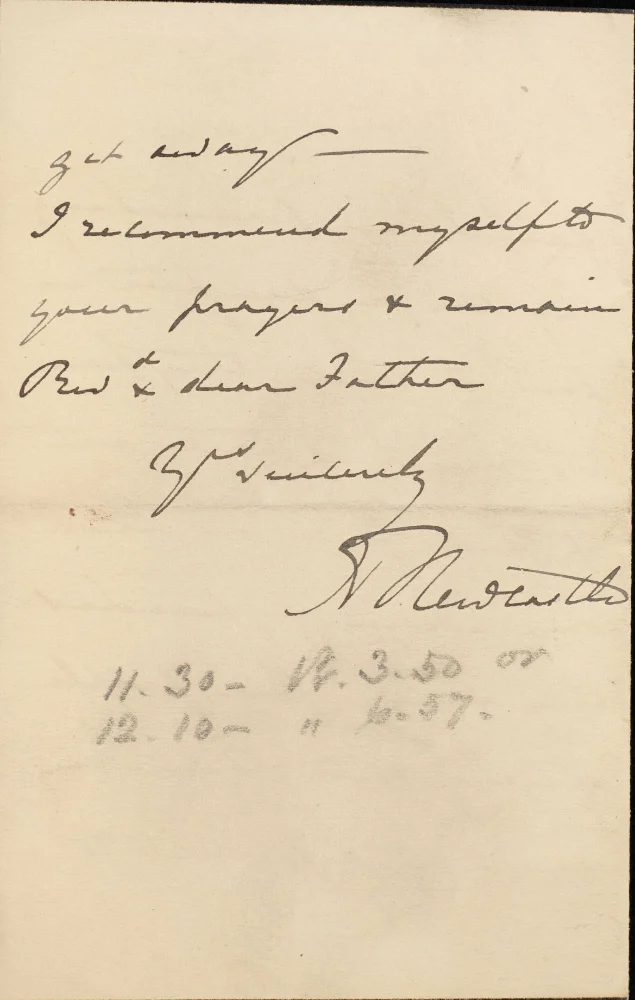 get away —
I recommend myself to
your prayers & remain
Revd & dear Father
Yrs sincerely
Newcastle
11.30 - 3.50 or
12.10 - " 6.57 -